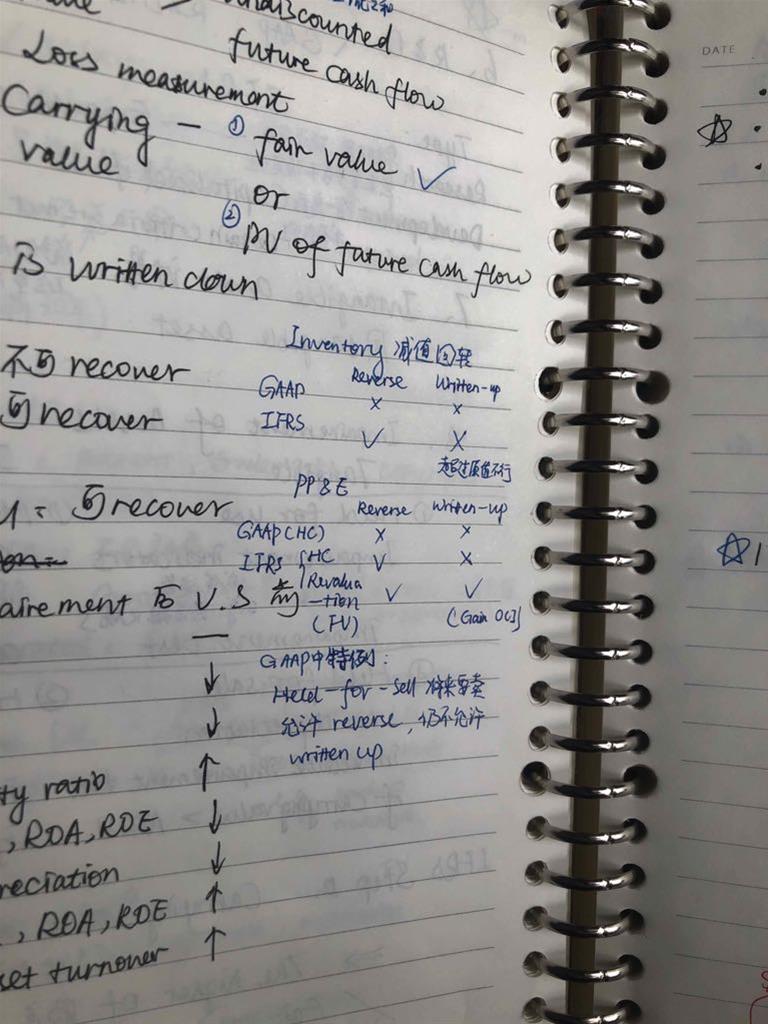 undiscounted
future cash flow
Loss measurement
Carrying value - ① fair value ✓
or
② PV of future cash flow
written down
Inventory 减值回转
Reverse Written-up
GAAP × ×
IFRS ✓ ×
超过原值不行
不可 recover
可 recover
PP&E
Reverse Written-up
GAAP (HC) × ×
IFRS { HC ✓ ×
Revaluation (FV) ✓ ✓
(Gain OCI)
= 可 recover
airement 后 V.S 前
GAAP中特例:
Held-for-sell 将来要卖
允许 reverse, 仍不允许
written up
—
↓
↓
ty ratio ↑
, ROA, ROE ↓
reciation ↓
, ROA, ROE ↑
set turnover ↑
DATE